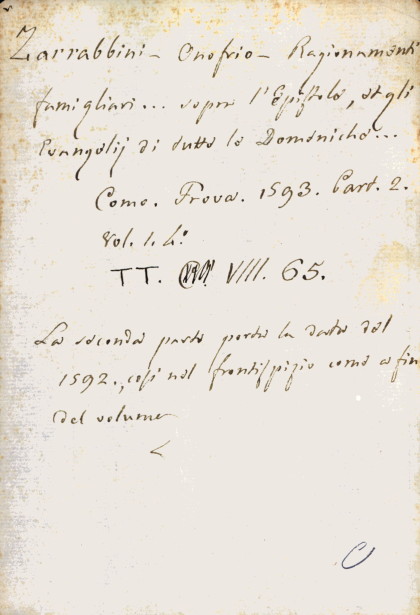 Zarrabbini - Onofrio - Ragionamenti
famigliari... sopra l'Epistole, et gli
Evangelij di tutte le Domeniche...
Como. Frova. 1593. Part. 2.
Vol. 1. 4.º
TT. VIII. 65.
La seconda parte porta la data del
1592., così nel frontispizio come a fin
del volume
C